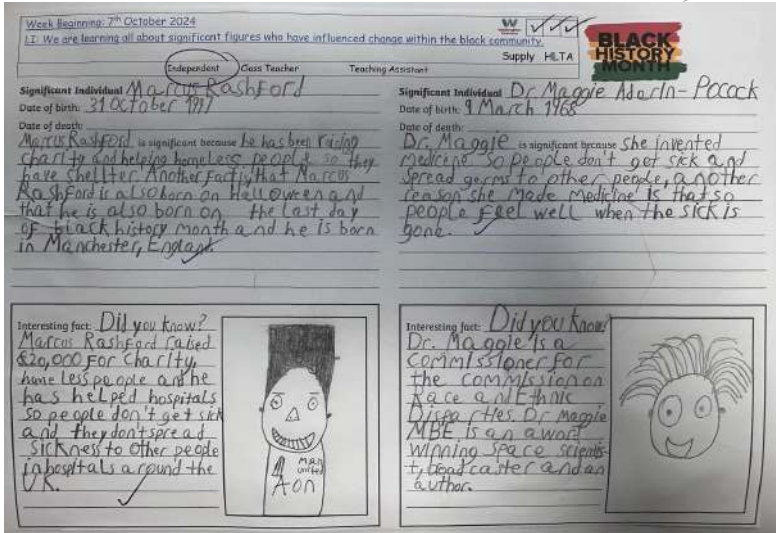 Week Beginning: 7th October 2024
LI: We are learning all about significant figures who have influenced change within the black community.
Supply HLTA
Independent Class Teacher Teaching Assistant
BLACK
HISTORY
MONTH
Significant Individual Marcus Rashford
Date of birth: 31 October 1997
Date of death:
Marcus Rashford is significant because he has been raising
charity and helping homeless people so they
have shellter. Another fact is that Marcus
Rashford is also born on Halloween and
that he is also born on the last day
of black history month and he is born
in Manchester, England.
Significant Individual Dr. Maggie Aderin-Pocock
Date of birth: 9 March 1968
Date of death:
Dr. Maggie is significant because she invented
medicine so people don't get sick and
spread germs to other people, another
reason she made medicine is that so
people feel well when the sick is
gone.
Interesting fact: Did you know?
Marcus Rashford raised
£20,000 for charity,
home less people and he
has helped hospitals
so people don't get sick
and they dont spread
sickness to other people
in hospitals around the
UK.
MAN
united
Aon
Interesting fact: Did you know?
Dr. Maggie is a
commissioner for
the commission on
Race and Ethnic
Disparties. Dr Maggie
MBE is an awort
winning space scientis-
t, broadcaster and an
author.